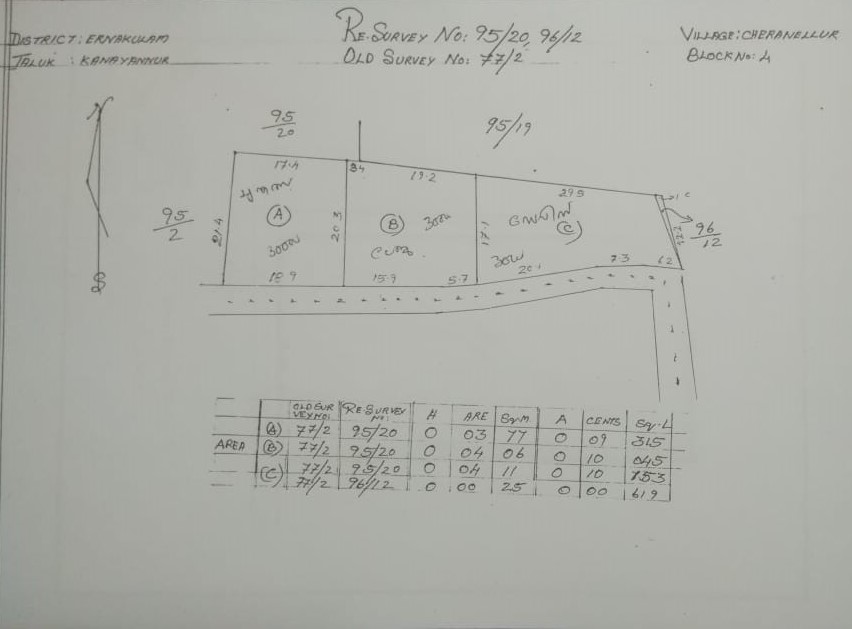 DISTRICT: ERNAKULAM
TALUK : KANAYANNUR
RE-SURVEY NO: 95/20, 96/12
OLD SURVEY NO: 77/2
VILLAGE: CHERANELLUR
BLOCK NO: 4
N
S
95/20
95/19
95/2
96/12
17.4
3.4
19.2
29.5
21.4
A
20.3
B
17.1
C
18.9
15.9
5.7
7.3
6.2
OLD SURVEY NO: RE-SURVEY NO: H ARE Sq.M A CENTS Sq.L
(A) 77/2 95/20 0 03 77 0 09 315
AREA (B) 77/2 95/20 0 04 06 0 10 045
(C) 77/2 95/20 0 04 11 0 10 153
77/2 96/12 0 00 25 0 00 619